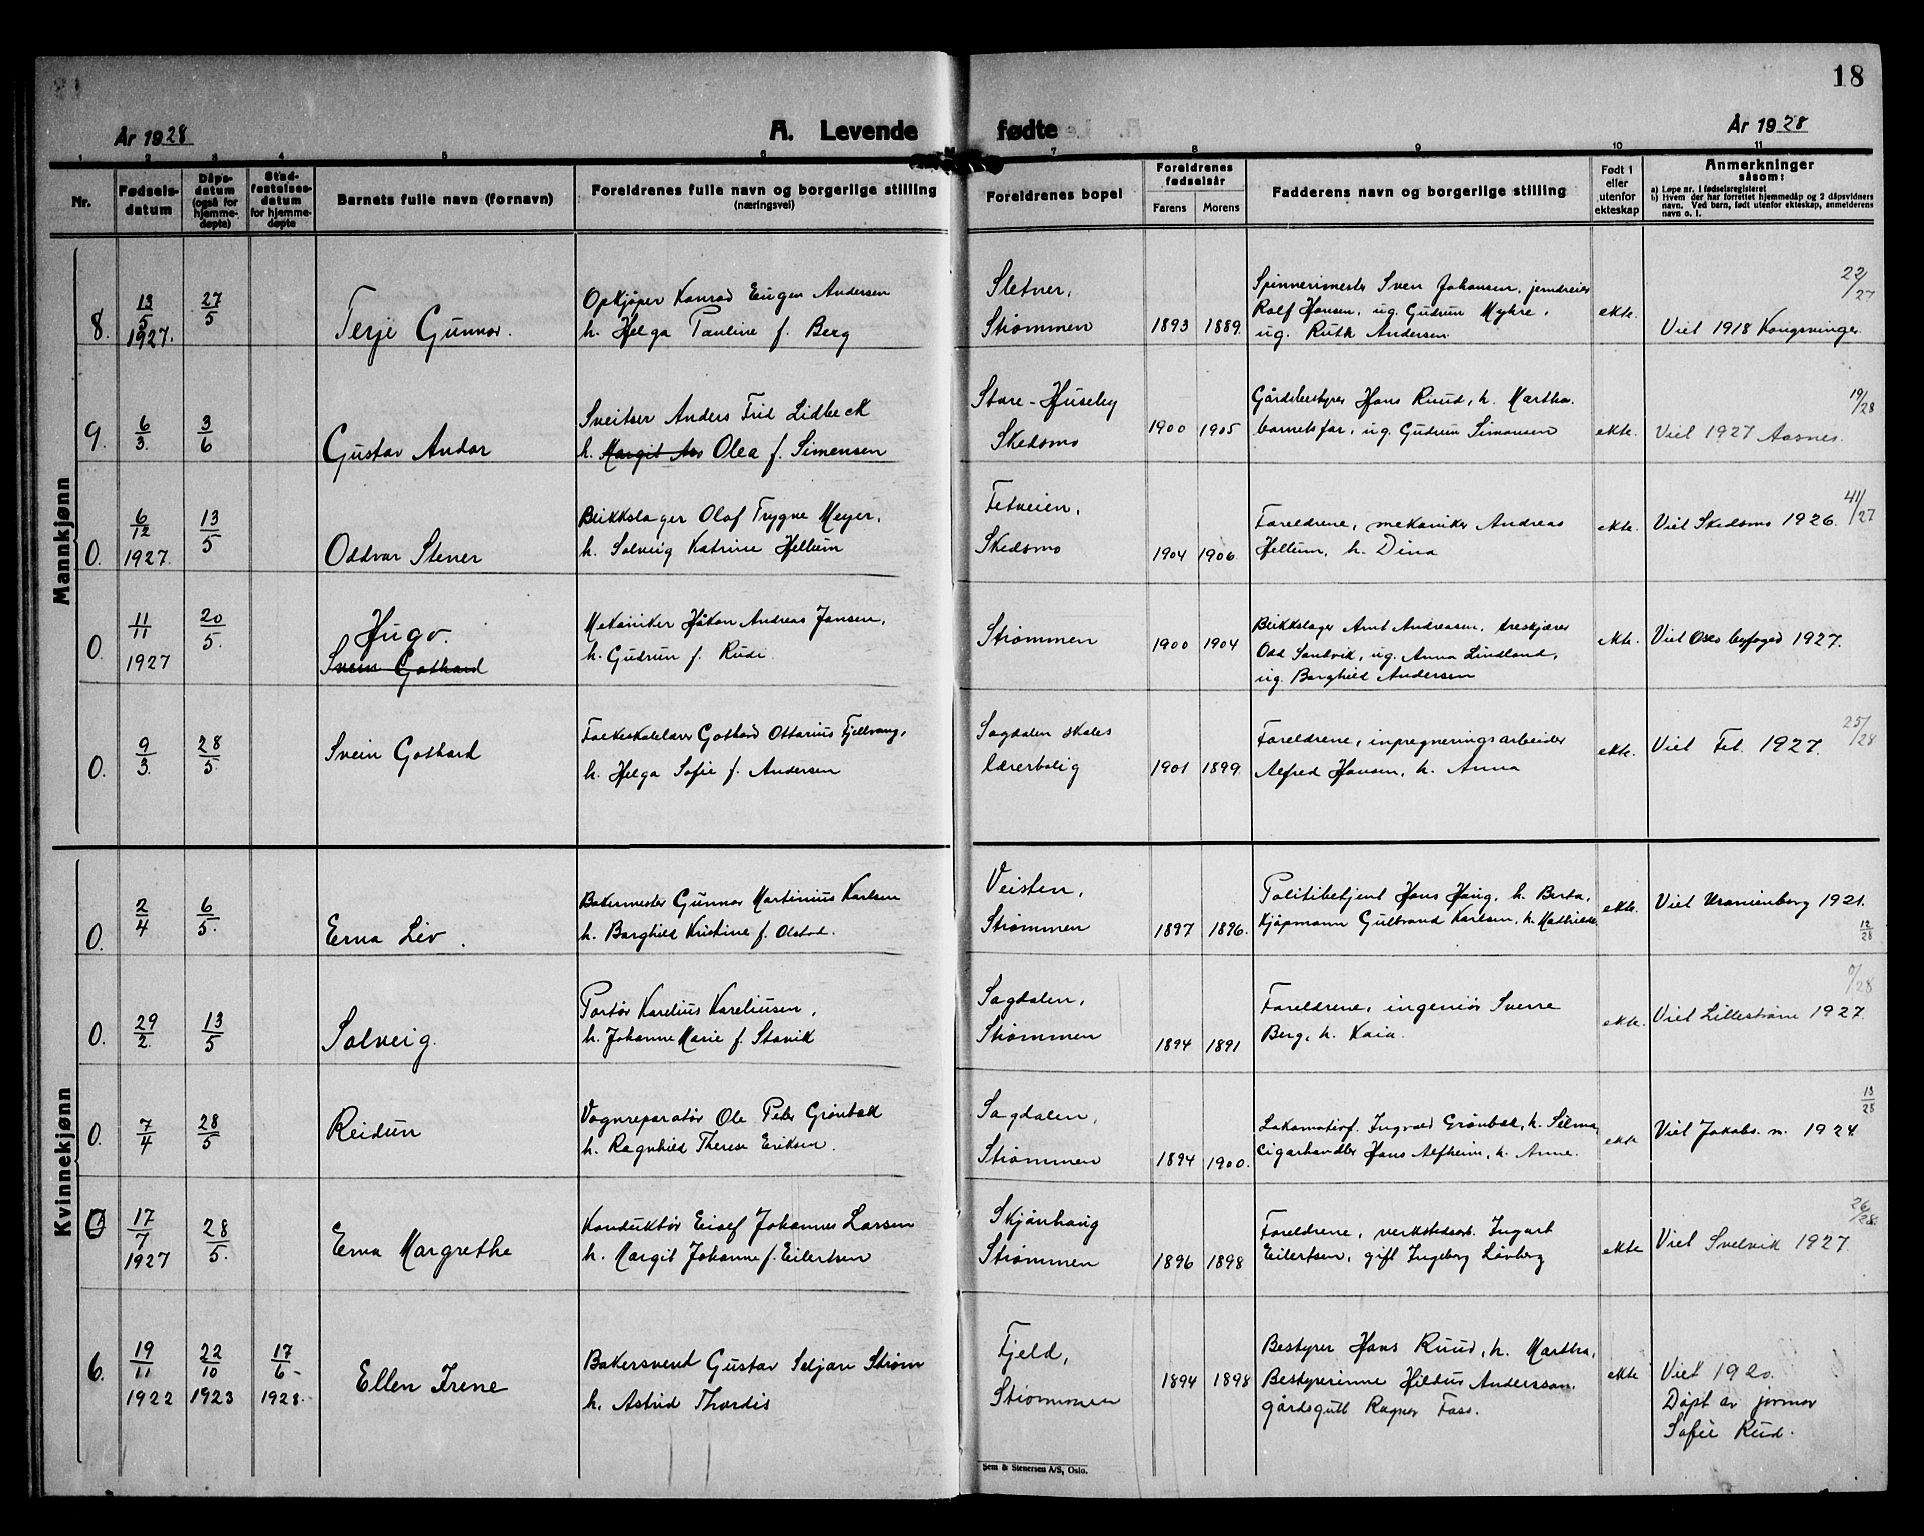 18
År 1928
A. Levende fødte
År 1928
1 2 3 4 5 6 7 8 9 10 11
Nr.
Fødselsdatum
Dåpsdatum (også for hjemmedøpte)
Stadfestelsesdatum for hjemmedøpte
Barnets fulle navn (fornavn)
Foreldrenes fulle navn og borgerlige stilling
(næringsvei)
Foreldrenes bopel
Foreldrenes fødselsår
Farens Morens
Fadderens navn og borgerlige stilling
Født i eller utenfor ekteskap
Anmerkninger
såsom:
a) Løpe nr. i fødselsregisteret
b) Hvem der har forrettet hjemmedåp og 2 dåpsvidners navn. Ved barn, født utenfor ekteskap, anmelderens navn o. l.
Mannkjønn
8. 13/5 1927. 27/5 Terje Gunnar.
Opkjøper Konrad Eugen Andersen
h. Helga Pauline f. Berg
Sletner,
Strømmen
1893 1889.
Spinnerimester Sven Johansen, jerndreier
Rolf Hansen, ug. Gudrun Myhre,
ug. Ruth Andersen.
ekte.
22/27
Viet 1918 Kongsvinger.
9. 6/3. 3/6 Gustav Andor
Sveitser Anders Frid Lidbeck
h. Margit Olea f. Simensen
Store-Huseby
Skedsmo
1900 1905
Gårdsbestyrer Hans Ruud, h. Martha.
barnets far, ug. Gudrun Simonsen
ekte.
19/28
Viet 1927 Aasnes.
0. 6/12 1927. 13/5 Oddvar Stener
Blikkslager Olaf Trygve Meyer,
h. Solveig Katrine Hellum
Fetveien,
Skedsmo
1904 1906.
Foreldrene, mekaniker Andreas
Hellum, h. Dina
ekte.
41/27
Viet Skedsmo 1926.
0. 11/11 1927 20/5. Hugo.
Svein Gothard
Mekaniker Håkon Andreas Jansen,
h. Gudrun f. Rudi
Strømmen
1900 1904
Blikkslager Arnt Andreasen, treskjærer
Odd Sandvik, ug. Anna Lindland,
ug. Borghild Andersen
ekte.
Viet Oslo byfoged 1927.
0. 9/3. 28/5. Svein Gothard
Folkeskolelærer Gothard Ottarius Fjellvang,
h. Helga Sofie f. Andersen
Sagdalen skoles
lærerbolig
1901 1899.
Foreldrene, inpregneringsarbeider
Alfred Hansen, h. Anna
ekte.
25/28
Viet Fet. 1927.
Kvinnekjønn
0. 2/4 6/5. Erna Liv.
Bakermester Gunnar Martinius Karlsen
h. Borghild Kristine f. Olstad.
Veisten,
Strømmen
1897 1896.
Politibetjent Hans Haug, h. Berta,
Kjøpmann Gulbrand Karlsen, h. Mathilde
ekte.
Viet Uranienborg 1921.
12/28
0. 29/2. 13/5 Solveig.
Portør Karelius Kareliussen,
h. Johanne Marie f. Stavik
Sagdalen,
Strømmen
1894 1891
Foreldrene, ingeniør Sverre
Berg, h. Kaia.
ekte.
/28
Viet Lillestrøm 1927.
0. 7/4 28/5 Reidun
Vognreparatør Ole Peter Grønbak
h. Ragnhild Therese Eriksen.
Sagdalen,
Strømmen
1894 1900.
Lokomotivf. Ingvald Grønbak, h. Selma,
cigarhandler Hans Alfheim, h. Anne.
ekte
13/28
Viet Jakobs m. 1924.
0 17/7 1927 28/5. Erna Margrethe
Konduktør Eiolf Johannes Larsen
h. Margit Johanne f. Eilertsen
Skjønhaug
Strømmen
1896 1898
Foreldrene, verkstedsarb. Ingart
Eilertsen, gift Ingeborg Løvberg
ekte
26/28.
Viet Svelvik 1927.
6. 19/11 1922 22/10 1923 17/6- 1928. Ellen Irene
Bakersvend Gustav Seljan Strøm
h. Astrid Thordis
Fjeld,
Strømmen
1894 1898
Bestyrer Hans Ruud, h. Martha,
Bestyrerinne Hildur Andersson,
gårdsgutt Ragnar Foss.
ekte
Viet 1920.
Døpt av jormor
Sofie Rud.
Sem & Stenersen A/S, Oslo.